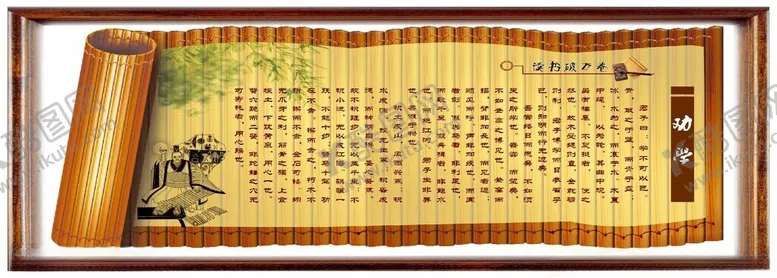 读书破万卷
劝学
君子曰：学不可以已。
青，取之于蓝，而青于蓝；
冰，水为之，而寒于水。木直
中绳，輮以为轮，其曲中规，
虽有槁暴，不复挺者，輮使之
然也。故木受绳则直，金就砺
则利，君子博学而日参省乎
己，则知明而行无过矣。
吾尝终日而思矣，不如须
臾之所学也；吾尝跂而望矣，
不如登高之博见也。登高而
招，臂非加长也，而见者远；
顺风而呼，声非加疾也，而闻
者彰。假舆马者，非利足也，
而致千里；假舟楫者，非能水
也，而绝江河。君子生非异
也，善假于物也。
积土成山，风雨兴焉；积
水成渊，蛟龙生焉；积善成
德，而神明自得，圣心备焉。
故不积跬步，无以至千里；不
积小流，无以成江海。骐骥一
跃，不能十步；驽马十驾，功
在不舍。锲而舍之，朽木不
折；锲而不舍，金石可镂。蚓
无爪牙之利，筋骨之强，上食
埃土，下饮黄泉，用心一也。
蟹六跪而二螯，非蛇鳝之穴无
可寄托者，用心躁也。